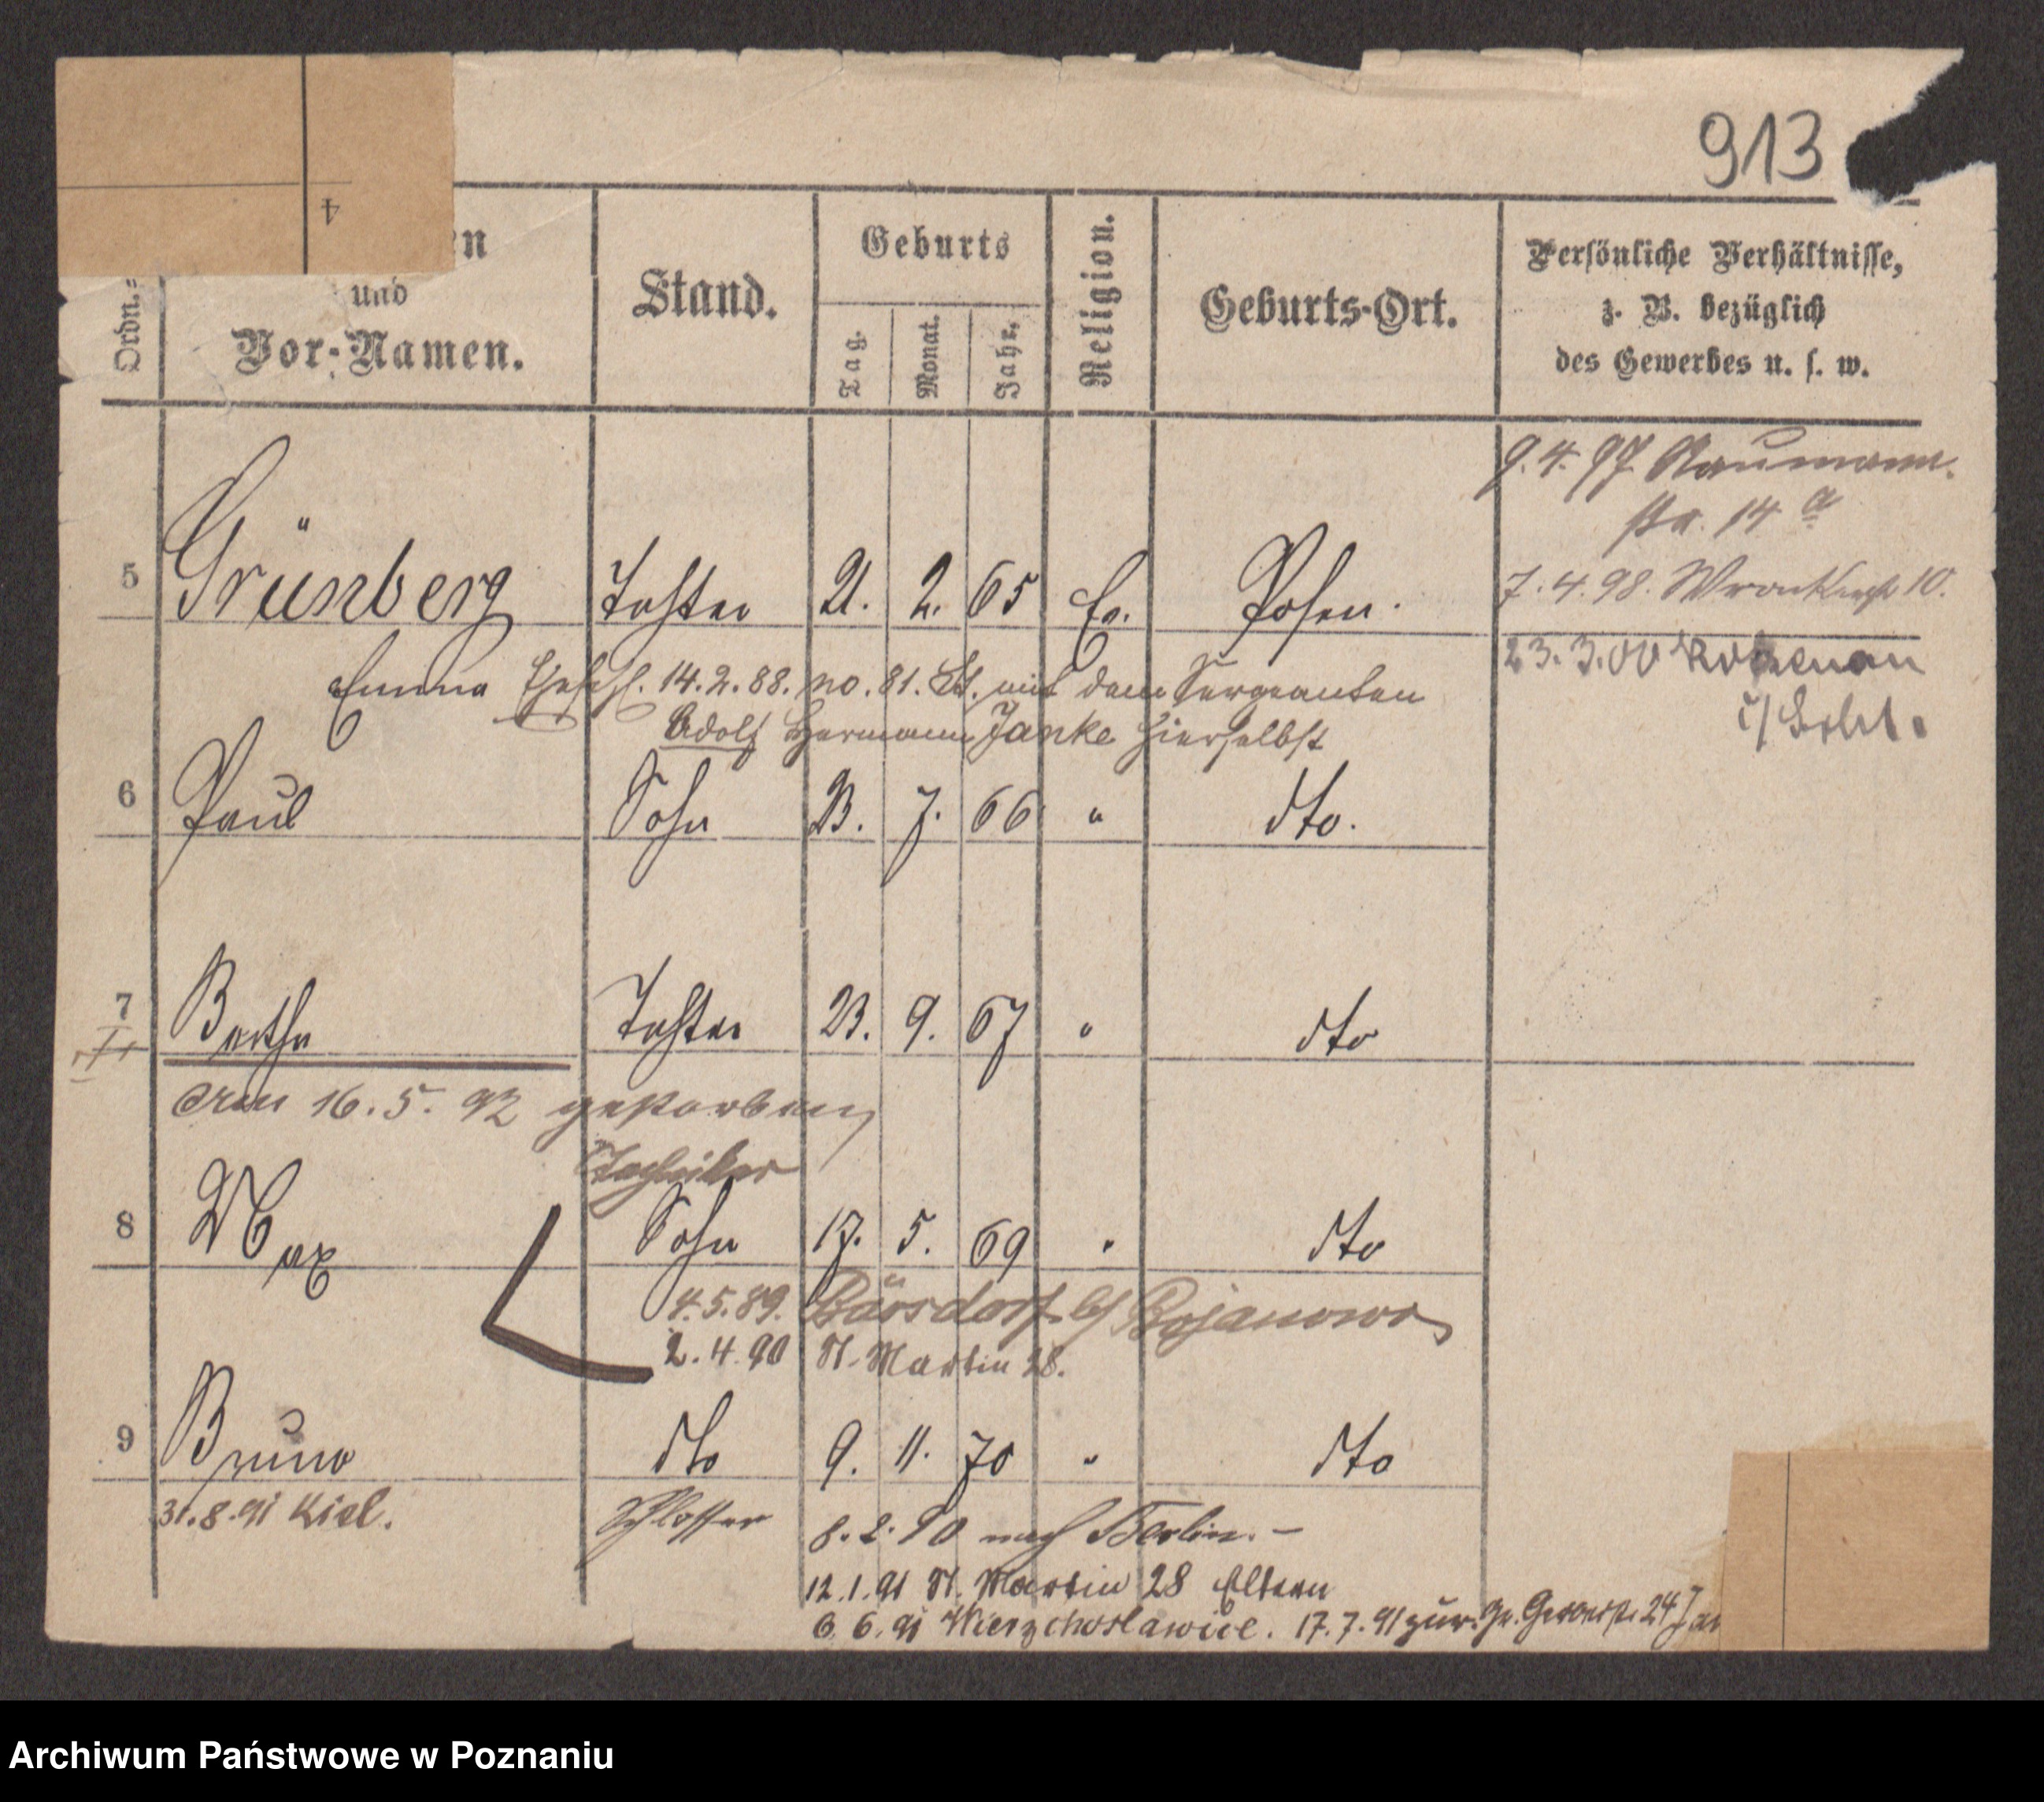 913
4
en
und
Ordn.=
Vor-Namen.
Stand.
Geburts
Tag.
Monat.
Jahr.
Religion.
Geburts-Ort.
Persönliche Verhältnisse,
z. B. bezüglich
des Gewerbes u. s. w.
9.4.97 Naumann-
str. 14 a
5 Grünberg Tochter 21. 2. 65 Ev. Posen.
7.4.98. Wronkerstr 10.
Emma Eheschl. 14.2.88. no. 81. St. mit dem Sergeanten
23.3.00 Kotzenau
i/Schl.
Adolf Hermann Janke hierselbst
6 Paul Sohn 23. 7. 66 " dto.
7 Bertha Tochter 23. 9. 67 " dto
Am 16.5.92 gestorben
Techniker
8 Max Sohn 17. 5. 69 " dto
4.5.89. Bärsdorf b/ Bojanowo
2.4.90 St. Martin 28.
9 Bruno dto 9. 11. 70 " dto
31.8.91 Kiel. Schlosser 8.2.90 nach Berlin. –
12.1.91 St. Martin 28 Eltern
6.6.91 Wierzchoslawice. 17.7.91 zur. Gr. Gerberstr. 24
Archiwum Państwowe w Poznaniu